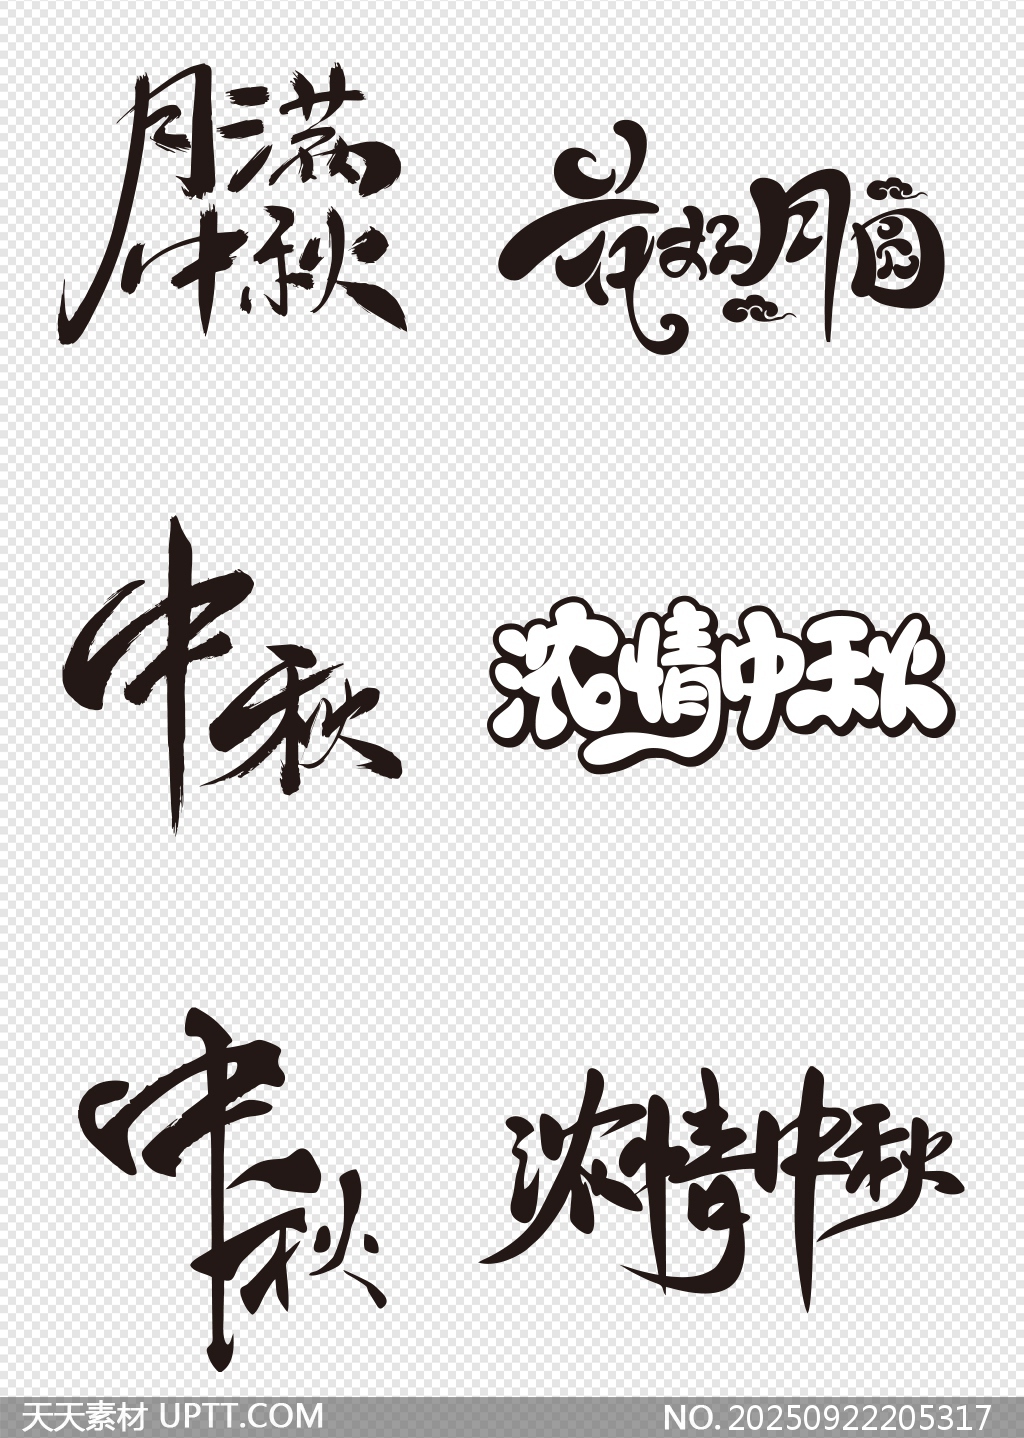 月满
中秋
花好月圆
中秋
浓情中秋
中秋
浓情中秋
天天素材 UPTT.COM
NO.20250922205317